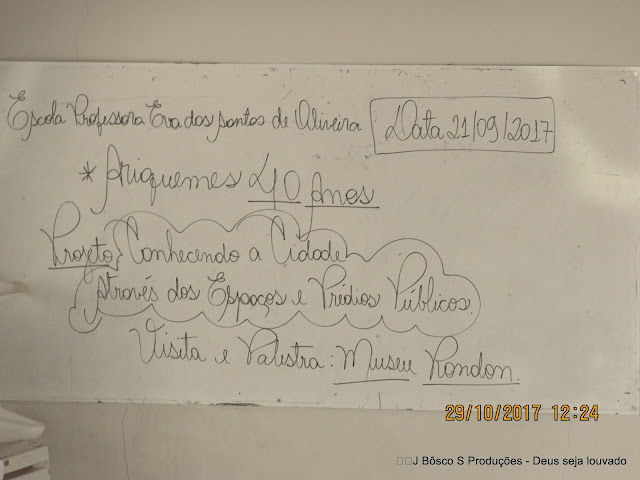 Escola Professora Eva dos santos de Oliveira Data 21/09/2017
* Ariquemes 40 Anos
Projeto Conhecendo a Cidade
Através dos Espaços e Prédios Públicos.
Visita e Palestra: Museu Rondon.
29/10/2017 12:24
J Bôsco S Produções - Deus seja louvado